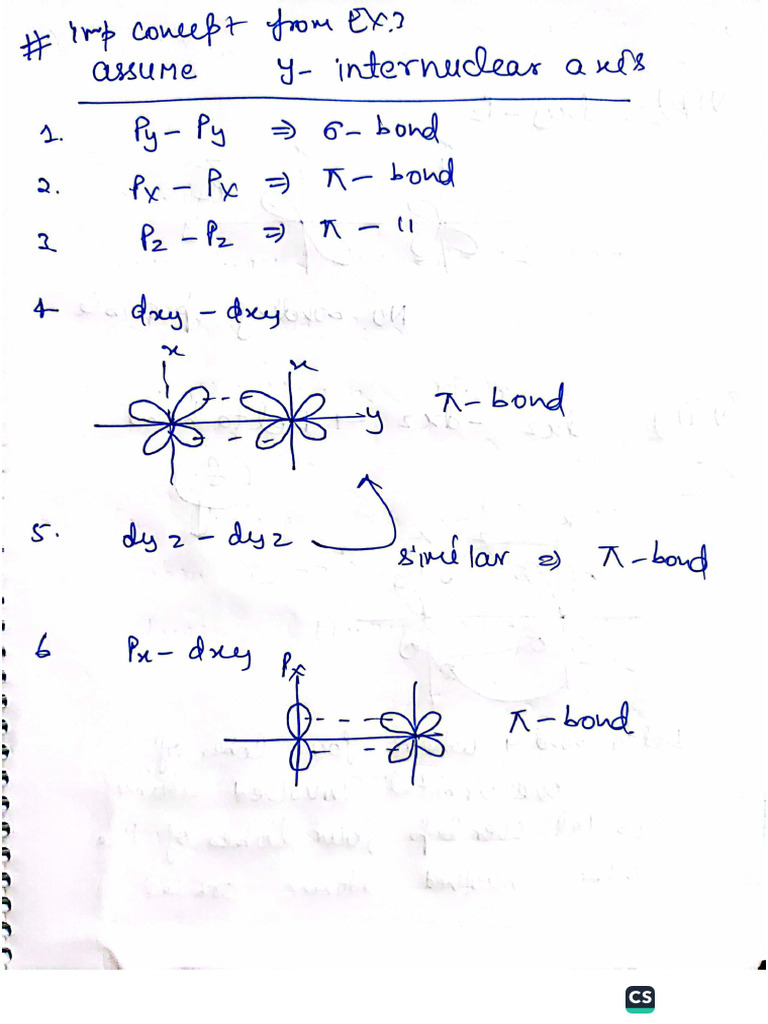 # Imp concept from EX.3
assume y- internuclear axis
1. Py - Py ⇒ σ - bond
2. Px - Px ⇒ π - bond
3 Pz - Pz ⇒ π - 11
4 dxy - dxy
x x
y π - bond
5. dyz - dyz similar ⇒ π - bond
6 Px - dxy Px
π - bond
CS